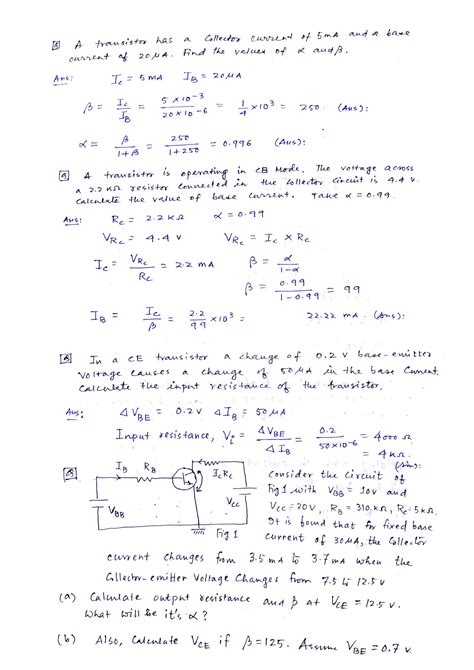 A transistor has a collector current of 5 mA and a base
current of 20 μA. Find the values of α and β.
Ans: I_C = 5 mA I_B = 20 μA
β = I_C / I_B = 5×10^-3 / 20×10^-6 = 1/4 ×10^3 = 250. (Ans):
α = β / 1+β = 250 / 1+250 = 0.996 (Ans):
A transistor is operating in CB Mode. The voltage across
a 2.2 KΩ resistor connected in the collector circuit is 4.4 V.
Calculate the value of base current. Take α = 0.99.
Ans: R_C = 2.2 KΩ α = 0.99
V_RC = 4.4 V V_RC = I_C × R_C
I_C = V_RC / R_C = 2.2 mA β = α / 1-α
β = 0.99 / 1-0.99 = 99
I_B = I_C / β = 2.2 / 99 ×10^3 = 22.22 mA. (Ans):
In a CE transistor a change of 0.2 V base-emitter
Voltage causes a change of 50 μA in the base current.
Calculate the input resistance of the transistor.
Ans: ΔV_BE = 0.2 V ΔI_B = 50 μA
Input resistance, = ΔV_BE / ΔI_B = 0.2 / 50×10^-6 = 4000 Ω
= 4 KΩ.
(Ans):
I_B R_B I_C R_C
V_BB V_CC
Fig 1
Consider the circuit of
Fig 1 with V_BB = 10V and
V_CC = 20V, R_B = 310 KΩ, R_C = 5 KΩ.
It is found that for fixed base
current of 30 μA, the collector
current changes from 3.5 mA to 3.7 mA when the
Collector-emitter Voltage Changes from 7.5 to 12.5 V
(a) Calculate output resistance and β at V_CE = 12.5 V.
What will be it's α?
(b) Also, Calculate V_CE if β = 125. Assume V_BE = 0.7 V.